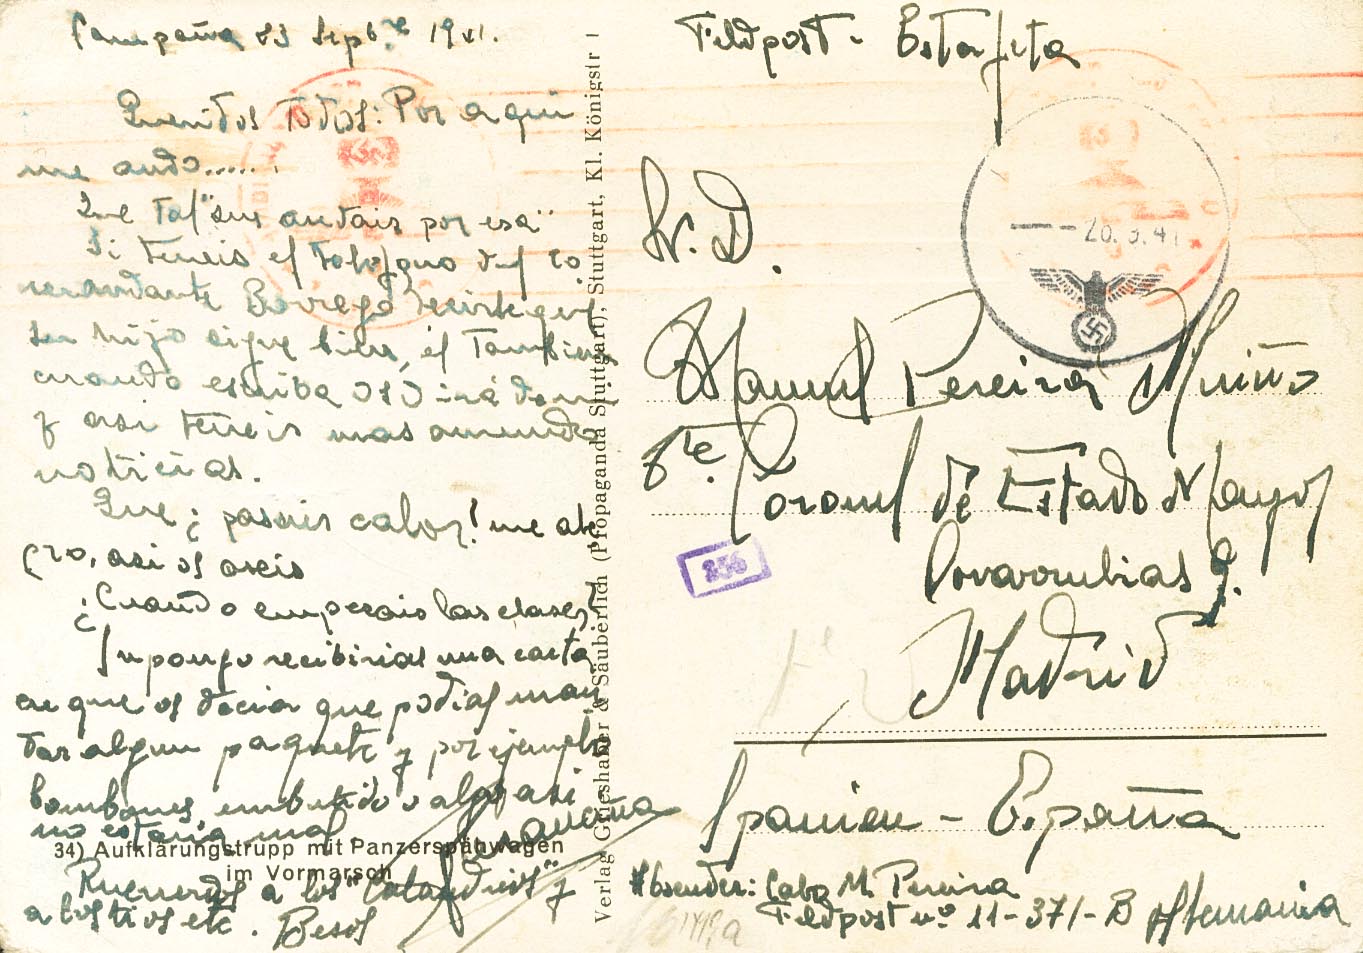 Campaña 23 Sepbre 1941.
Queridos Todos: Por aqui
me ando......
Que Tal "sus andais por esa"
Si Teneis el telefono del co
mandante Borrego decirle que
su hijo sigue bien, él Tambien
cuando escriba os dirá de mi
y asi Teneis mas amenudo
noticias.
Que ¿ pasais calor! me ale
gro, asi os aseis
¿Cuando empezais las clases?
Supongo recibirias una carta
en que os decia que podias man
dar algun paquete y por ejemplo
bombones, embutido o algo asi
no estaria mal
Recuerdos a los " " y
a los tios etc. Besos
34) Aufklärungstrupp mit Panzerspähwagen
im Vormarsch
Verlag Grieshaber & Säuberlich (Propaganda Stuttgart), Stuttgart, Kl. Königstr 1
Feldpost - Estafeta
Sr. D.
Manuel Pereira Muiño
Tte. Coronel de Estado Mayor
Covarrubias 9.
Madrid
Spanien - España
Absender: Cabo M. Pereira
Feldpost nº 11-371-B Alemania
856